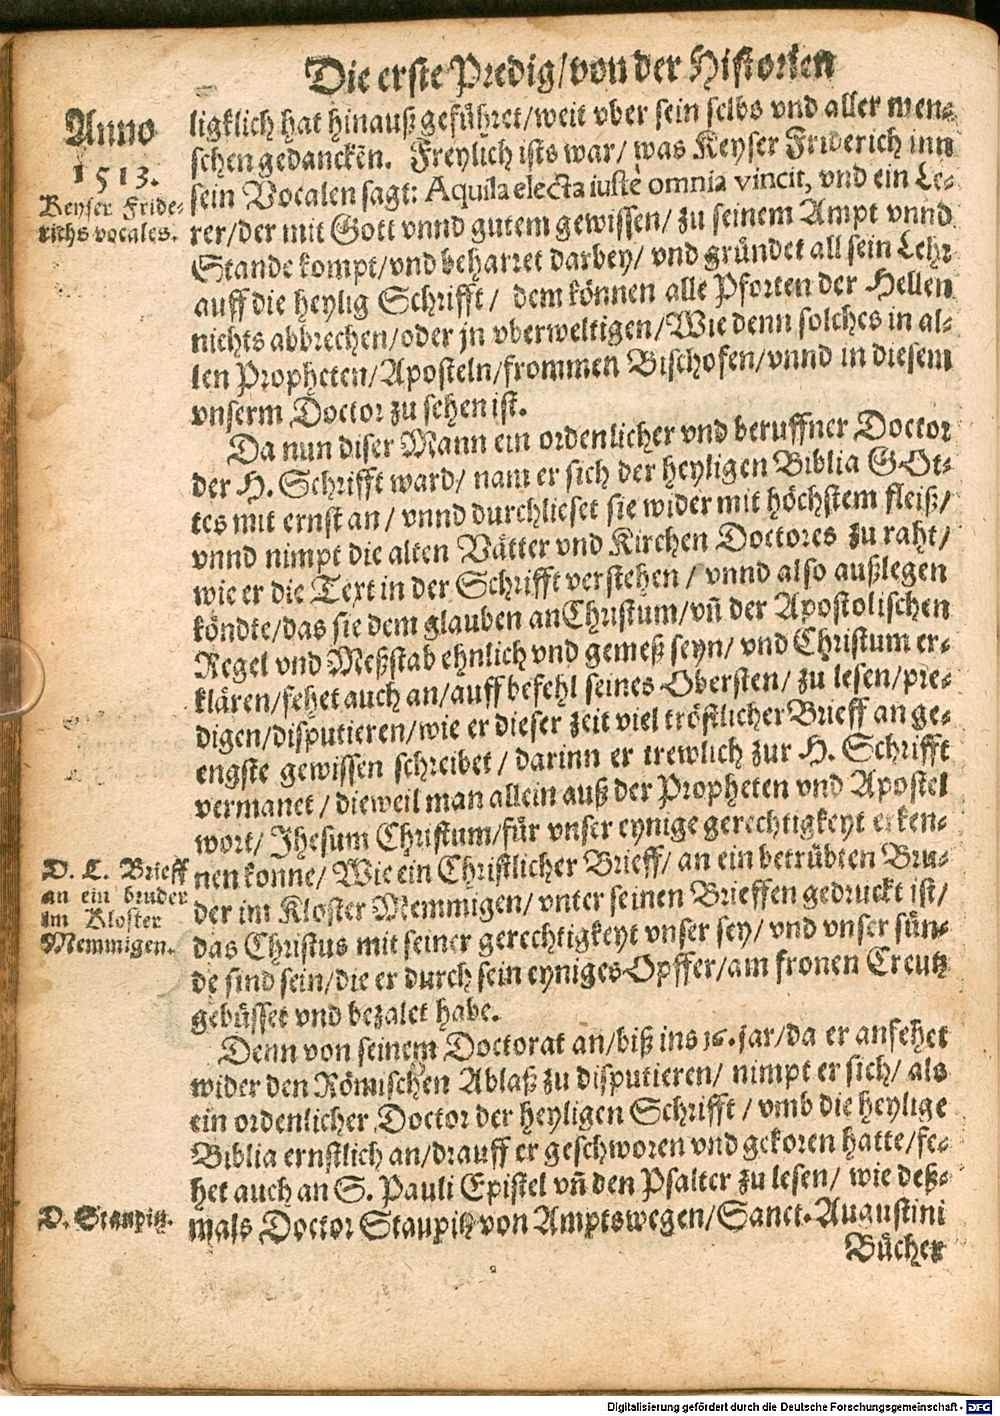 Die erste Predig/von der Historien
Anno
1513.
Keyser Fride-
richs vocales.
ligklich hat hinauß geführet/weit vber sein selbs vnd aller men-
schen gedancken. Freylich ists war/ was Keyser Friderich inn
sein Vocalen sagt: Aquila electa iustè omnia vincit, vnd ein Le-
rer/der mit Gott vnnd gutem gewissen/ zu seinem Ampt vnnd
Stande kompt/vnd beharret darbey/ vnd gründet all sein Lehr
auff die heylig Schrifft/ dem können alle Pforten der Hellen
nichts abbrechen/oder jn vberweltigen/Wie denn solches in al-
len Propheten/Aposteln/frommen Bischofen/vnnd in diesem
vnserm Doctor zu sehen ist.
Da nun diser Mann ein ordenlicher vnd beruffner Doctor
der H. Schrifft ward/ nam er sich der heyligen Biblia GOt-
tes mit ernst an/ vnnd durchlieset sie wider mit höchstem fleiß/
vnnd nimpt die alten Vätter vnd Kirchen Doctores zu raht/
wie er die Text in der Schrifft verstehen/ vnnd also außlegen
köndte/das sie dem glauben an Christum/vñ der Apostolischen
Regel vnd Meßstab ehnlich vnd gemeß seyn/ vnd Christum er-
klären/fehet auch an/auff befehl seines Obersten/ zu lesen/pre-
digen/disputieren/wie er dieser zeit viel tröstlicher Brieff an ge-
engste gewissen schreibet/ darinn er trewlich zur H. Schrifft
vermanet/ dieweil man allein auß der Propheten vnd Apostel
wort/ Jhesum Christum/für vnser eynige gerechtigkeyt erken-
nen könne/ Wie ein Christlicher Brieff/ an ein betrübten Bru-
der im Kloster Memmigen/ vnter seinen Brieffen gedruckt ist/
das Christus mit seiner gerechtigkeyt vnser sey/ vnd vnser sün-
de sind sein/die er durch sein eyniges Opffer/am fronen Creutz
gebüsset vnd bezalet habe.
D. L. Brieff
an ein bruder
im Kloster
Memmigen.
Denn von seinem Doctorat an/biß ins 16. jar/da er anfehet
wider den Römischen Ablaß zu disputieren/ nimpt er sich/ als
ein ordenlicher Doctor der heyligen Schrifft/ vmb die heylige
Biblia ernstlich an/drauff er geschworen vnd gekoren hatte/fe-
het auch an S. Pauli Epistel vñ den Psalter zu lesen/ wie deß-
mals Doctor Staupitz von Amptswegen/Sanct. Augustini
D. Staupitz.
Bücher
Digitalisierung gefördert durch die Deutsche Forschungsgemeinschaft - DFG